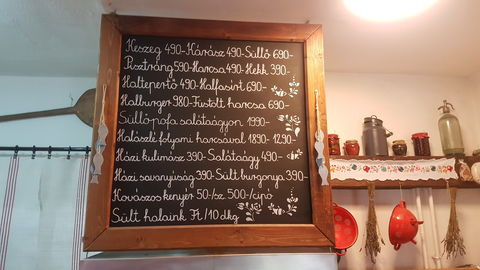 Keszeg 490-Kárász 490-Süllő 690-
Pisztráng 590-Harcsa 490-Hekk 390-
Haltepertő 490-Halfasírt 690-
Halburger 980-Füstölt harcsa 690-
Süllőpofa salátaágyon 1990-
Halászlé folyami harcsával 1890- 1290-
Házi kulimász 390-Salátaágy 490-
Házi savanyúság 390-Sült burgonya 390-
Kovászos kenyér 50-/sz. 500-/cipó
Sült halaink Ft/10 dkg